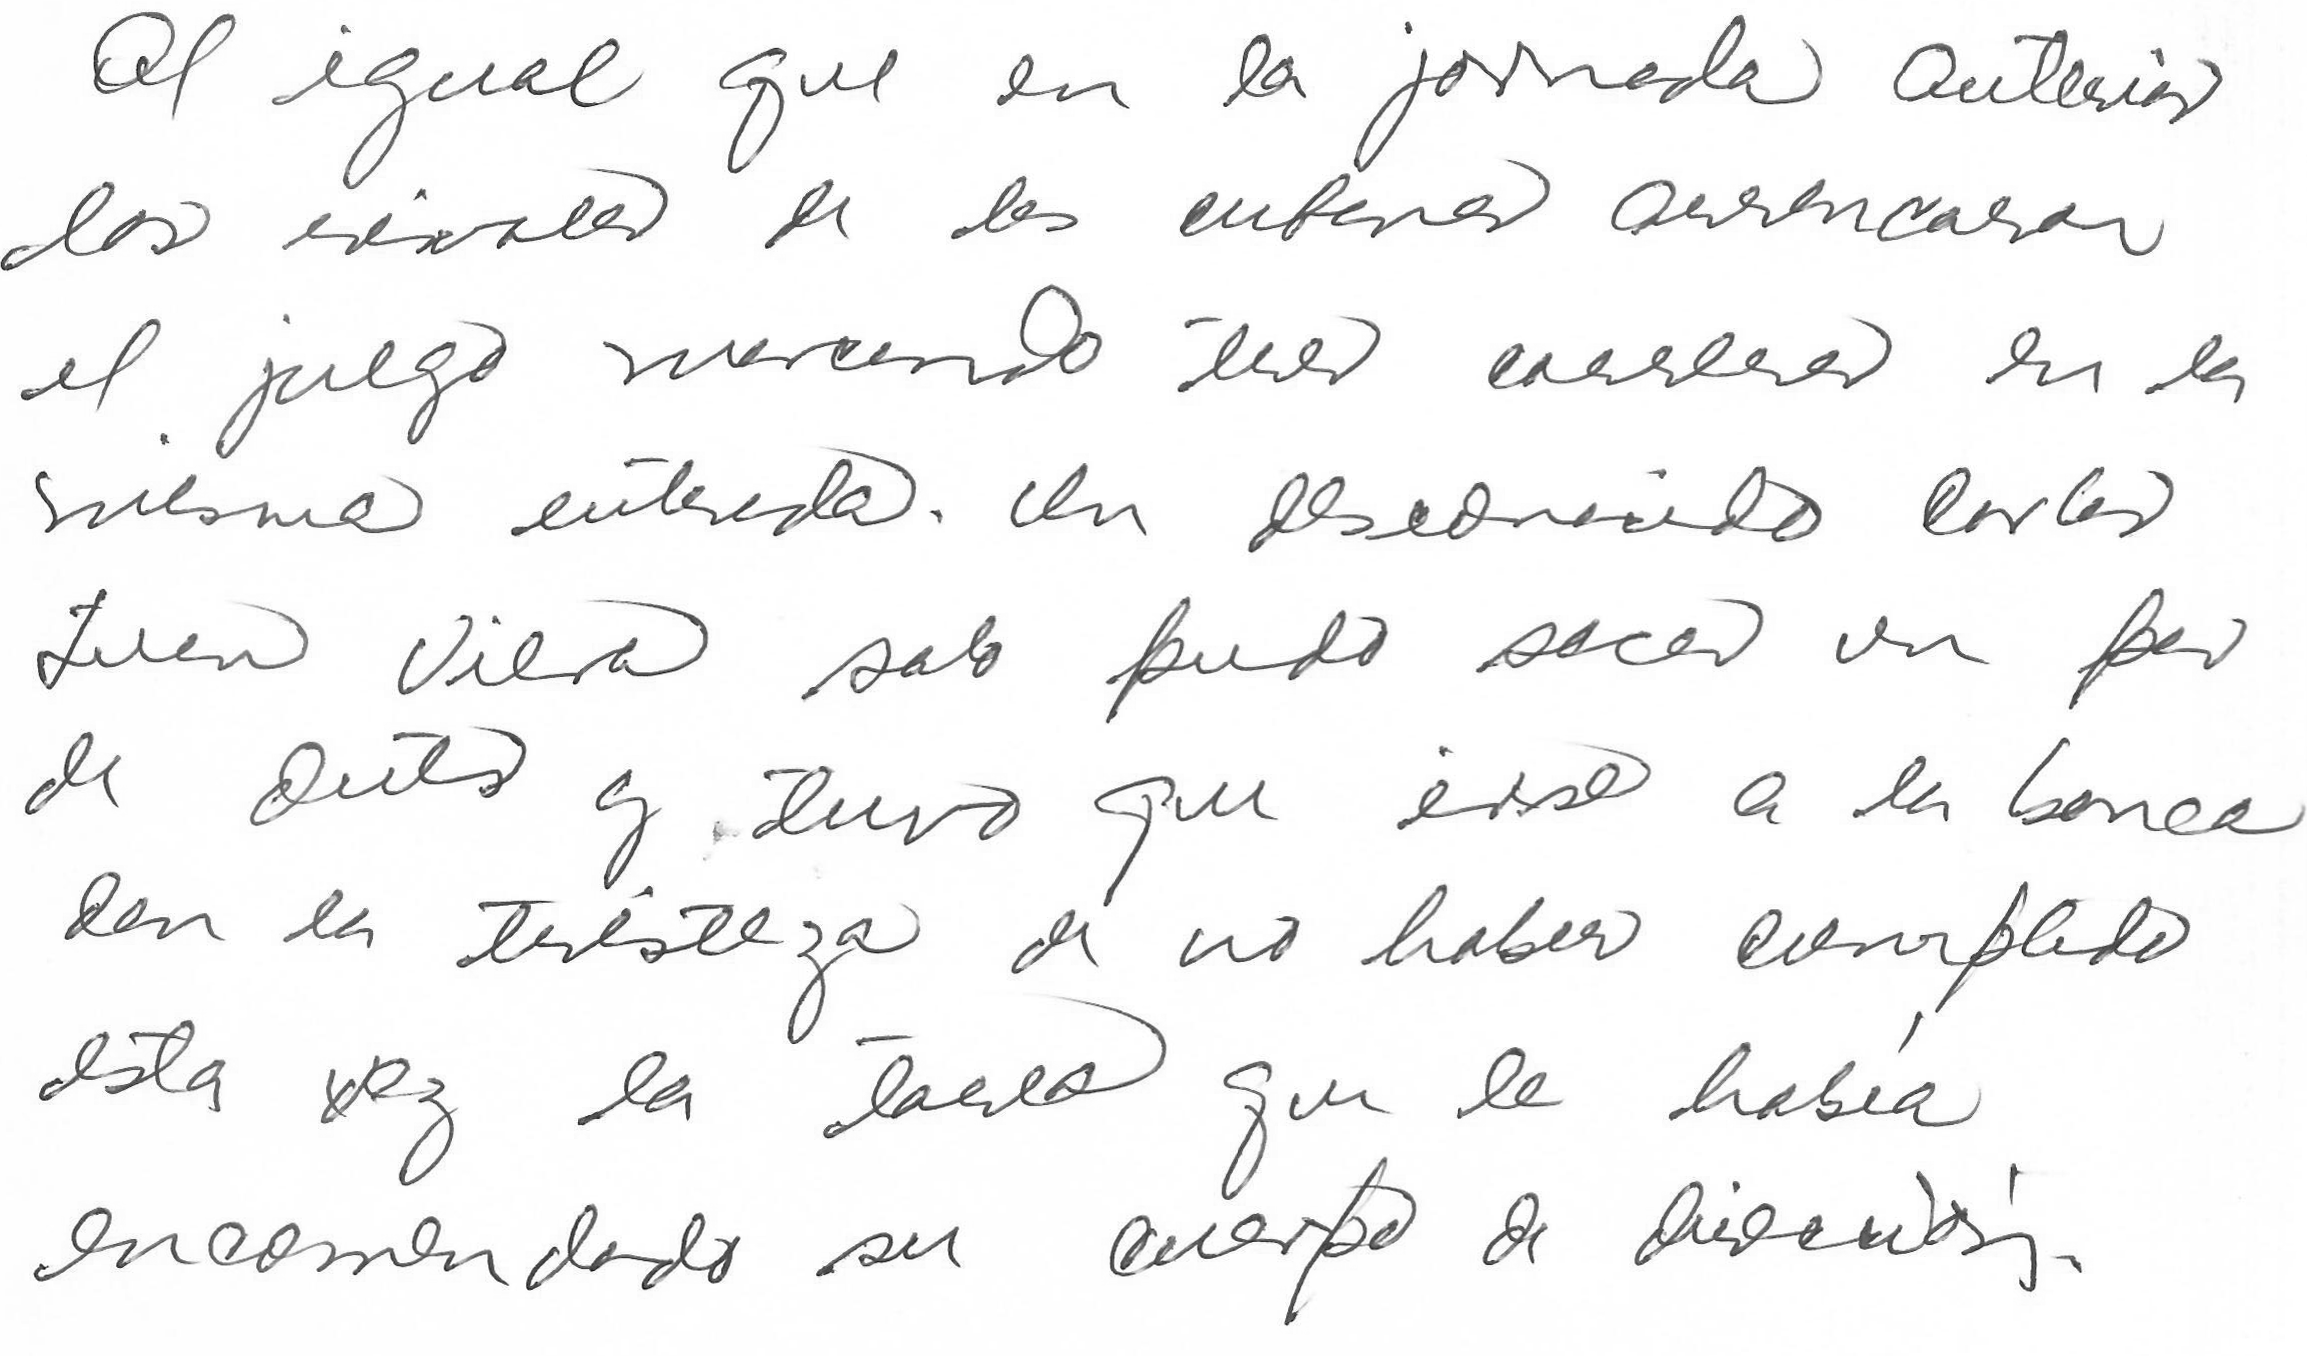 Al igual que en la jornada anterior
los rivales de los cubanos arrancaron
el juego marcando tres carreras en la
misma entrada. Un desconocido Carlos
Juan Viera solo pudo sacar un par
de outs y tuvo que irse a la banca
con la tristeza de no haber cumplido
esta vez la tarea que le había
encomendado su cuerpo de dirección.